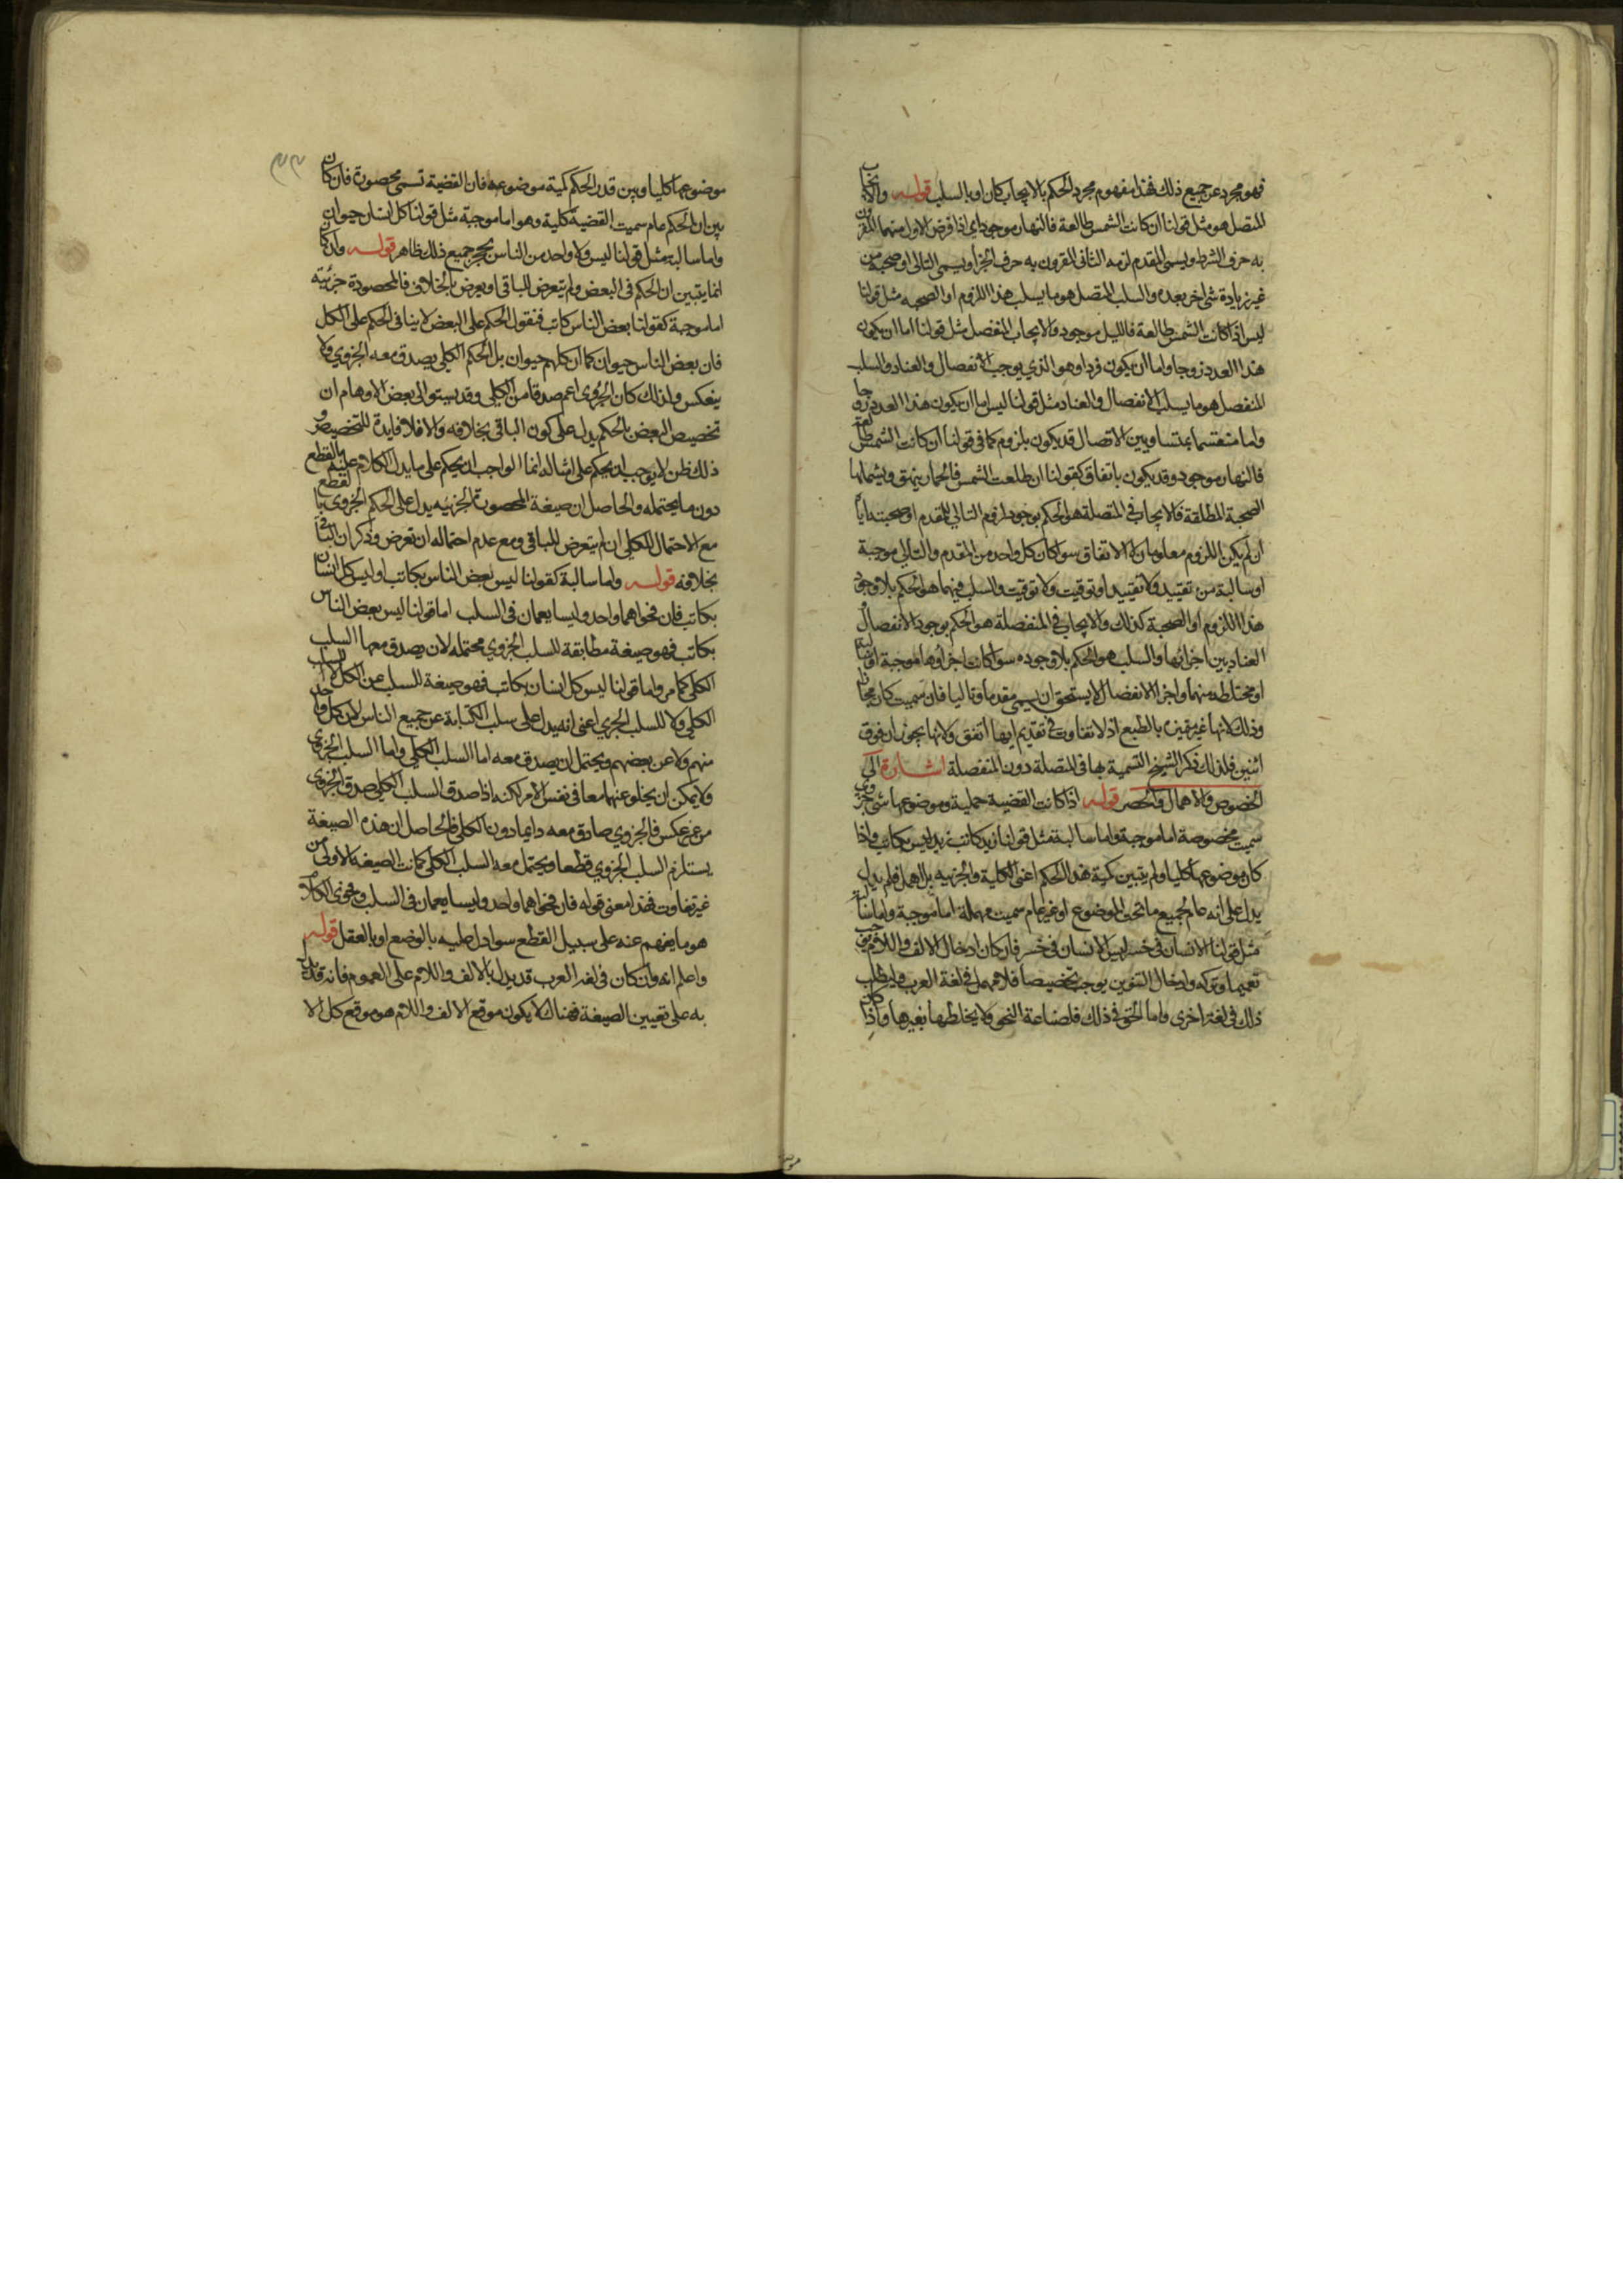 فهو مجرد عن جميع ذلك فهذا مفهوم مجرد الحكم بالايجاب كان او بالسلب قوله والايجاب
المتصل هو مثل قولنا ان كانت الشمس طالعة فالنهار موجود اي اذا فرض الاول منهما المقرون
به حرف الشرط ويسمى المقدم لزمه الثانى المقرون به حرف الجزاء ويسمى التالى او صحبه من
غير زيادة شى اخر بعده والسلب المتصل هو ما يسلب هذا اللزوم او الصحبه مثل قولنا
ليس اذا كانت الشمس طالعة فالليل موجود والايجاب المنفصل مثل قولنا اما ان يكون
هذا العدد زوجا واما ان يكون فردا وهو الذي يوجب الانفصال والعناد والسلب
المنفصل هو ما يسلب الانفصال والعناد مثل قولنا ليس اما ان يكون هذا العدد زوجا
واما منقسما بمتساويين الاتصال قد يكون بلزوم كما فى قولنا ان كانت الشمس طالعة
فالنهار موجود وقد يكون باتفاق كقولنا ان طلعت الشمس فالحمار ينهق ويشملها
الصحبة المطلقة فالايجاب فى المتصلة هو الحكم بوجود لزوم التالي للمقدم او صحبته اياه
ان لم يكن اللزوم معلوما الاتفاق سوا كان كل واحد من المقدم والتالي موجبة
او سالبة من تقييد ولا تقييد او توقيت ولا توقيت والسلب فيهما هو الحكم بلا وجود
هذا اللزوم او الصحبة كذلك والايجاب فى المنفصلة هو الحكم بوجود الانفصال
العناد بين اجزائها والسلب هو الحكم بلا وجوده سوا كانت اجزاؤها موجبة او سالبة
او مختلطه منهما واجزا الانفصال لا يستحق ان يسمى مقدما وتاليا فان سميت كان مجازا
وذلك لانها غير متميزين بالطبع اذ لا تفاوت فى تقديم ايها اتفق ولانها يجوز ان فوق
اثنين فلذلك ذكر الشيخ التسمية بها فى المتصلة دون المنفصلة اشارة الى
الخصوص والاهمال والحصر قوله اذا كانت القضية حملية وموضوعها شى جزوي
سميت مخصوصة اما موجبة واما سالبة مثل قولنا زيد كاتب زيد ليس بكاتب واذا
كان موضوعها كليا ولم يتبين كمية هذا الحكم اعنى الكلية والجزييه بل اهمل فلم يدل
يدل على انه عام لجميع ما تحت الموضوع او غير عام سميت مهملة اما موجبة واما سالبة
مثل قولنا الانسان فى خسر ليس الانسان فى خسر فان كان ادخال الالف واللام يوجب
تعميما وتركه وادخال التنوين يوجب تخصيصا فلا مهمل فى لغة العرب وليطلب
ذلك فى لغة اخرى واما الحق فى ذلك فلصناعة النحو ولا يخلطها بغيرها واذا كان
موضوعها كليا وبين قدر الحكم كمية موضوعه فان القضية تسمى محصورة فان كان
بين ان الحكم عام سميت القضية كلية وهو اما موجبة مثل قولنا كل انسان حيوان
واما سالبة مثل قولنا ليس ولا واحد من الناس بحجر جميع ذلك ظاهر قوله وان كان
انما يتبين ان الحكم فى البعض ولم يتعرض للباقى او يعرض بالخلاف فالمحصورة جزئية
اما موجبة كقولنا بعض الناس كاتب فنقول الحكم على البعض لا ينافى الحكم على الكل
فان بعض الناس حيوان كما ان كلهم حيوان بل الحكم الكلي يصدق معه الجزوي ولا
ينعكس ولذلك كان الجزوى اعم صدقا من الكلي وقد يسبق الى بعض الاوهام ان
تخصيص البعض بالحكم يدل على كون الباقى بخلافه والا فلا فايدة للتخصيص و
ذلك ظن لا يوجب ان يحكم على امثاله انما الواجب ان يحكم على ما يدل الكلام عليه بالقطع
دون ما يحتمله والحاصل ان صيغة المحصورة الجزييه يدل على الحكم الجزوى بالقطع
مع الاحتمال للكلي ان لم يتعرض للباقى ومع عدم احتماله ان تعرض وذكر ان الباقى
بخلافه قوله واما سالبة كقولنا ليس بعض الناس بكاتب او ليس كل انسان
بكاتب فان فحواهما واحد وليسا يعمان فى السلب اما قولنا ليس بعض الناس
بكاتب فهو صيغة مطابقة للسلب الجزوي محتمله لان يصدق معها السلب
الكلي كما مر واما قولنا ليس كل انسان بكاتب فهو صيغة السلب عن الكل لا السلب
الكلي ولا للسلب الجزي اعنى انه يدل على سلب الكتابة عن جميع الناس لا عن كل واحد
منهم ولا عن بعضهم ويحتمل ان يصدق معه اما السلب الكلي واما السلب الجزوى
ولا يمكن ان يخلو عنهما معا فى نفس الامر لكنه اذا صدق السلب الكلي صدق الجزوى
من غير عكس فالجزوي صادق معه دايما دون الكلي فالحاصل ان هذه الصيغة
يستلزم السلب الجزوي قطعا ويحتمل معه السلب الكلي كما كانت الصيغة الاولى من
غير تفاوت فهذا معنى قوله فان فحواهما واحد وليسا يعمان فى السلب وفحوى الكلام
هو ما يفهم عنه على سبيل القطع سوا دل عليه بالوضع او بالعقل قوله
واعلم انه وان كان فى لغة العرب قد يدل بالالف واللام على العموم فانه قد يدل
به على تعيين الصيغة فهناك لا يكون موقع الالف واللام هو موقع كل الا